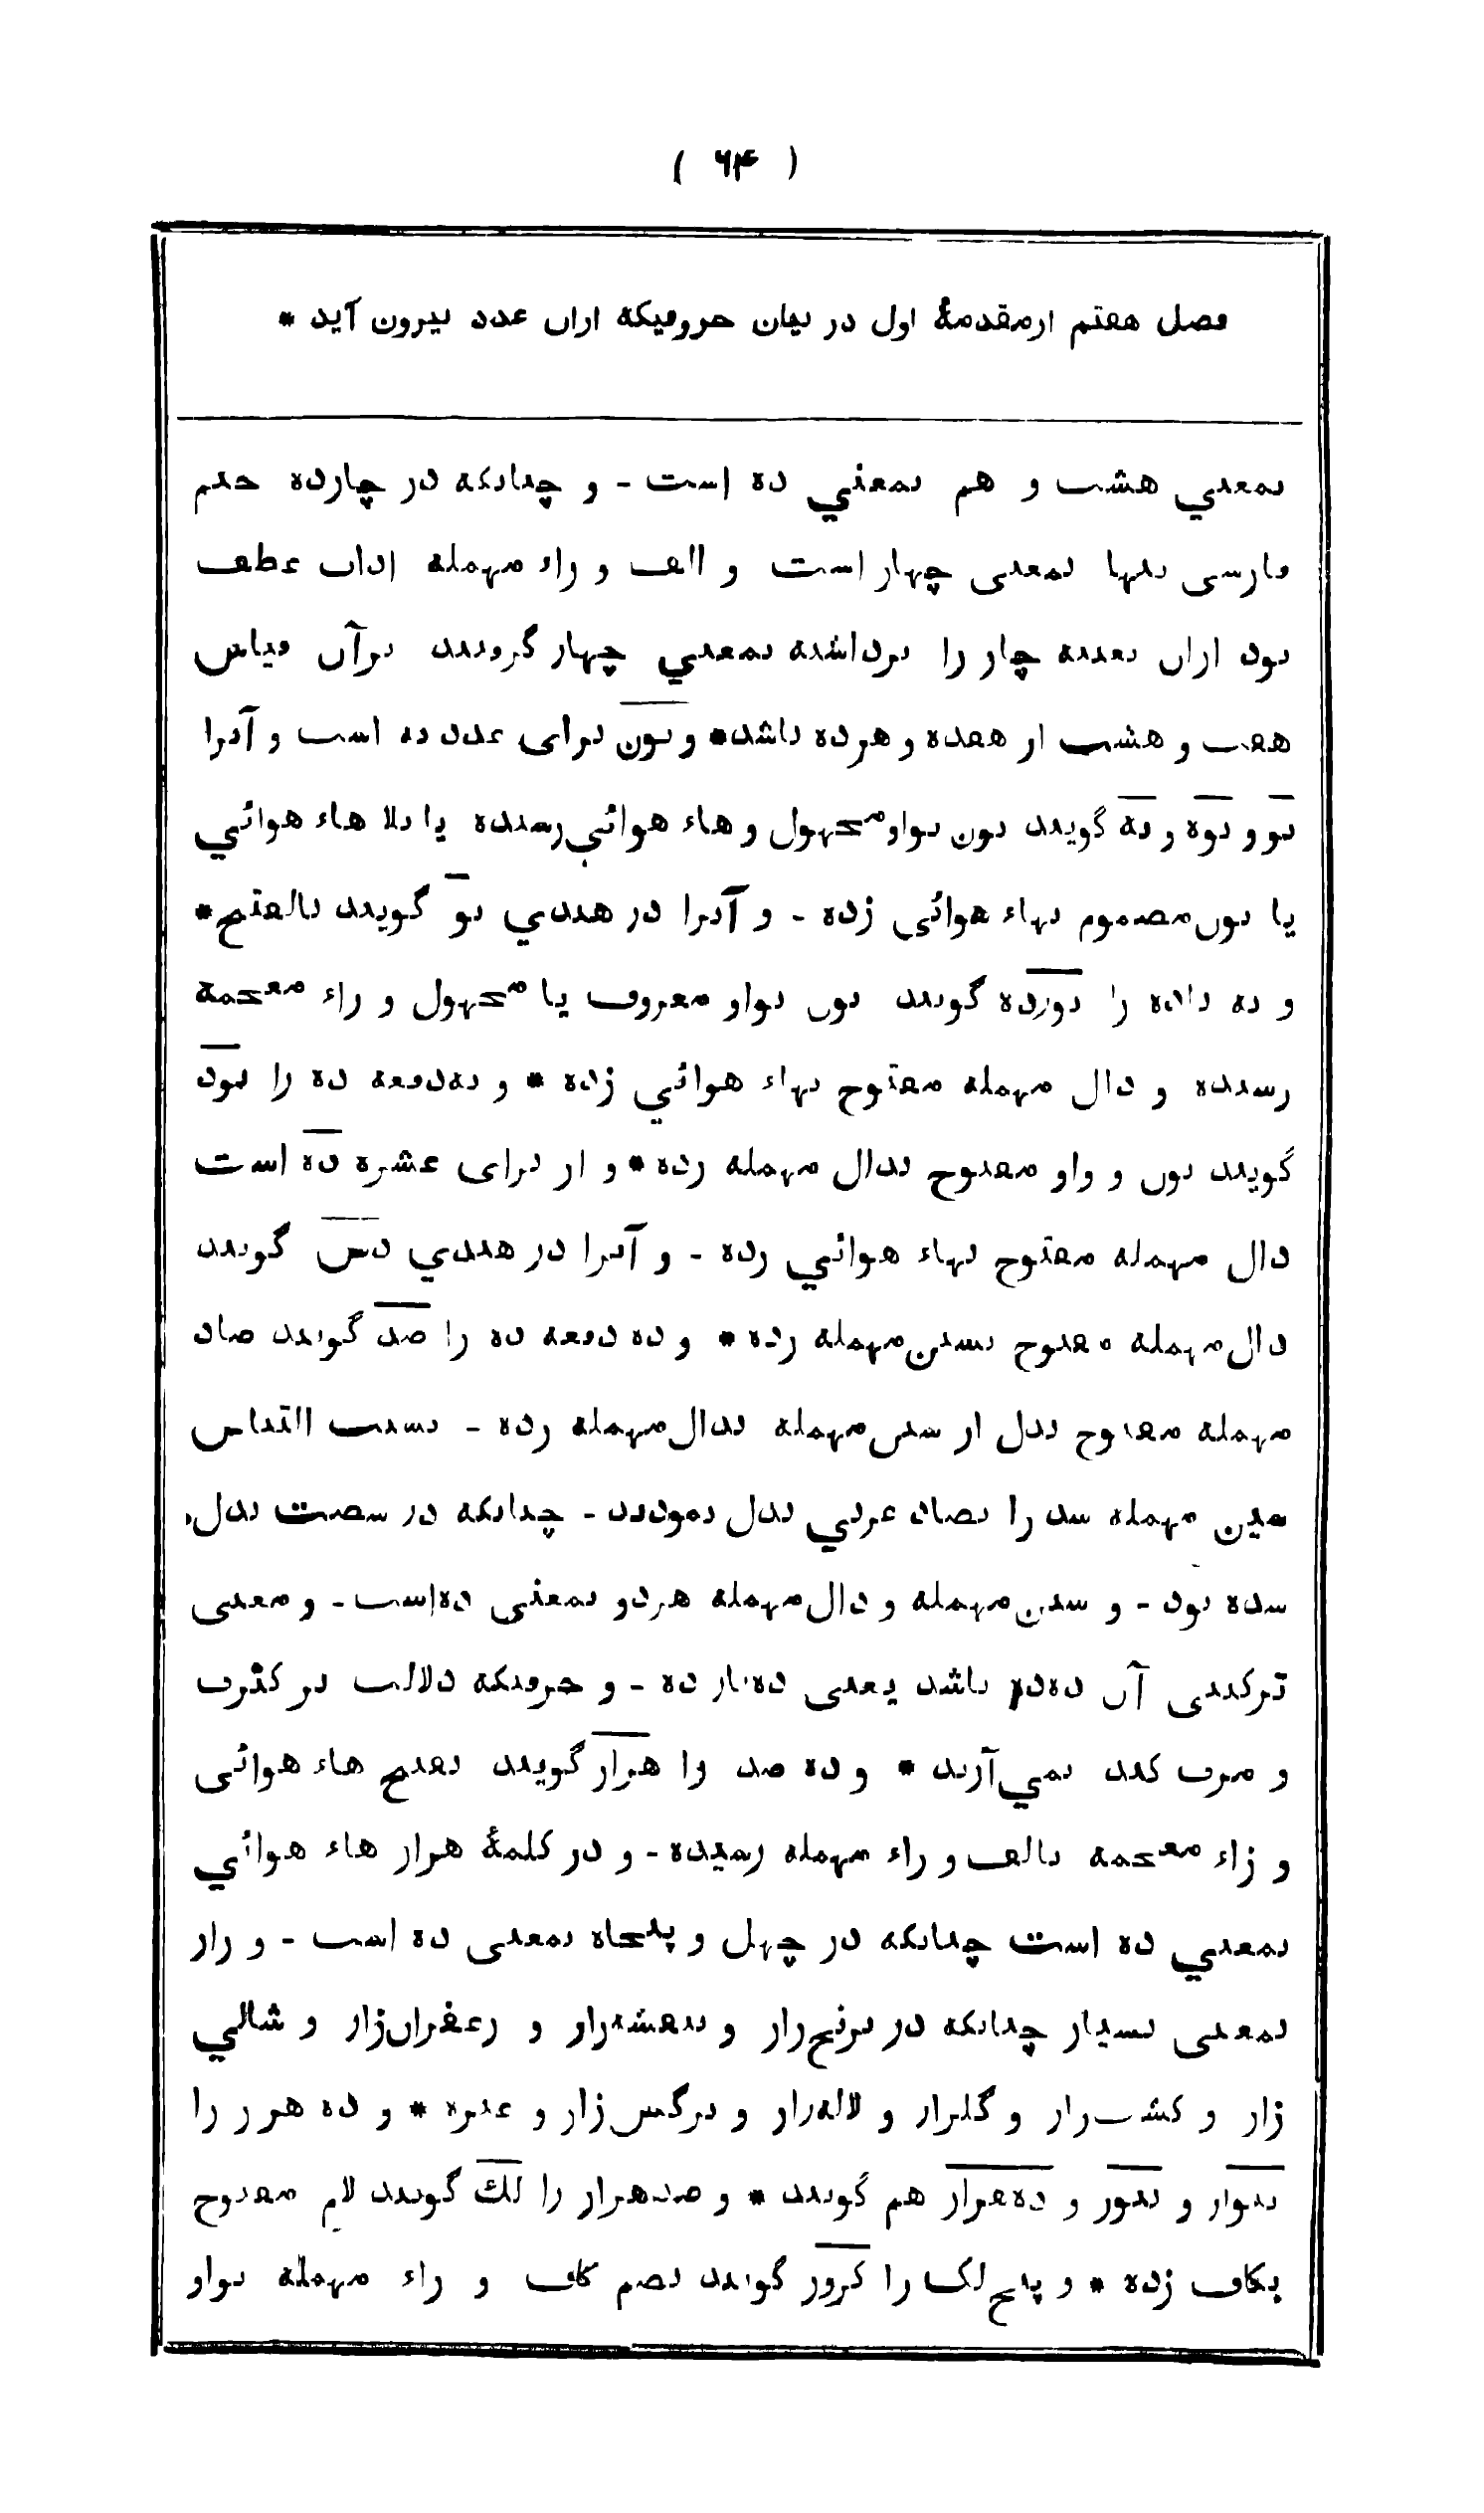 ( ۶۴ )
فصل هفتم ازمقدمهٔ اول در بیان حروفیکه ازان عدد بیرون آید *
بمعني هشت و هم بمعني ده است - و چنانکه در چارده جیم
فارسي تنها بمعنی چهار است و الف و راء مهمله ادات عطف
بود ازان بعینه چار را برداشته بمعني چهار گرویدند برآن قیاس
هفت و هشت از هفده و هرده باشد * و نون برای عدد نه است و آنرا
نو و نوه و نه گویند نون بواو مجهول و هاء هوائي رسیده یا بلا هاء هوائي
یا نون مضموم بهاء هوائی زده - و آنرا در هندي نو گویند بالفتح *
و نه داده را نوزده گویند نون بواو معروف یا مجهول و زاء معجمه
رسیده و دال مهمله مفتوح بهاء هوائي زده * و نه دفعه ده را نود
گویند نون و واو مفتوح بدال مهمله زده * و از برای عشره ده است
دال مهمله مفتوح بهاء هوائي زده - و آنرا در هندي دس گویند
دال مهمله مفتوح بسین مهمله زده * و ده دفعه ده را صد گویند صاد
مهمله مفتوح بدل از سین مهمله بدال مهمله زده - بسبب التباس
سین مهمله سد را بصاد عربي بدل نمودند - چنانکه در شصت بدل
سده بود - و سین مهمله و دال مهمله هردو بمعنی ده است - و معنی
ترکیبی آن ده ده باشد یعنی ده بار ده - و حروفیکه دلالت بر کثرت
و صرف کند نمي آرند * و ده صد را هزار گویند بفتح هاء هوائی
و زاء معجمه بالف و راء مهمله رسیده - و در کلمهٔ هزار هاء هوائي
بمعني ده است چنانکه در چهل و پنجاه بمعنی ده است - و زار
بمعنی بسیار چنانکه در برنج زار و بنفشه زار و زعفران زار و شالي
زار و کشت زار و گلزار و لاله زار و نرگس زار و غیره * و ده هزر را
بیوار و بیور و ده هزار هم گویند * و صد هزار را لک گویند لام مفتوح
بکاف زده * و پنج لک را کرور گویند بضم کاف و راء مهمله بواو